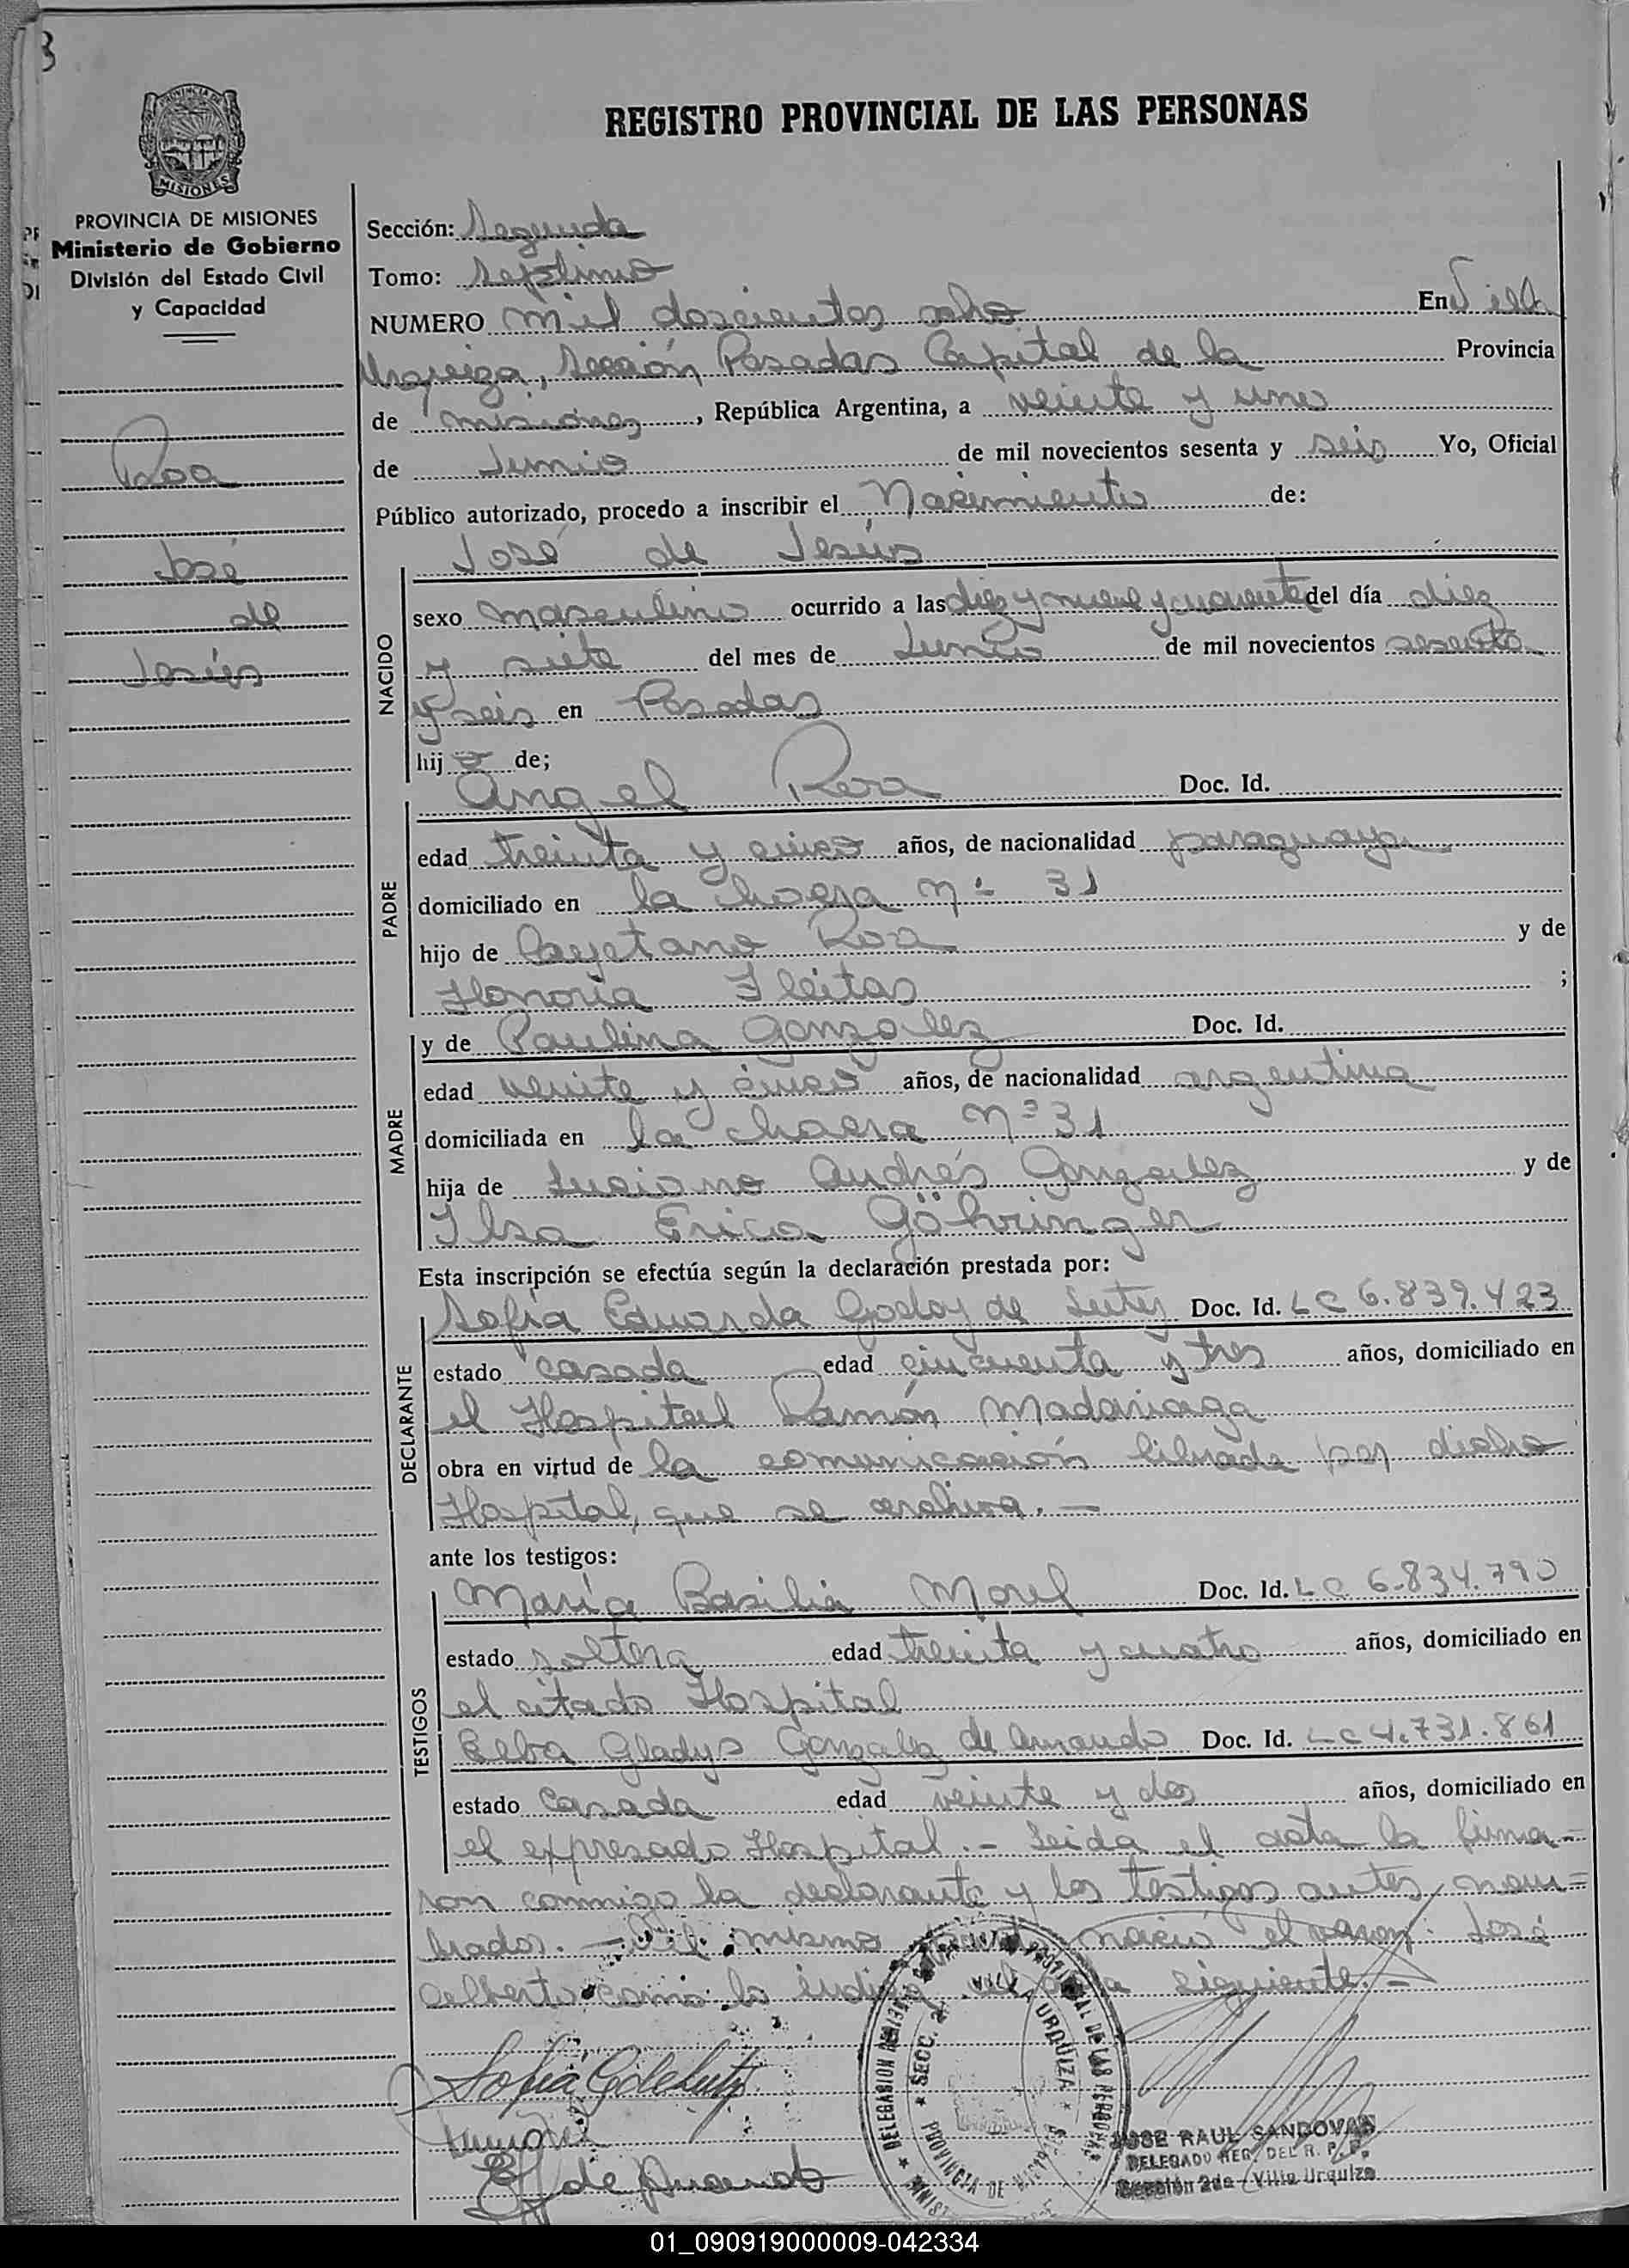 REGISTRO PROVINCIAL DE LAS PERSONAS
MISIONES
PROVINCIA DE MISIONES
Ministerio de Gobierno
División del Estado Civil
y Capacidad
Roa
José
de
Jesús
Sección: Segunda
Tomo: Septimo
NUMERO mil doscientos ocho En Villa
Urquiza, Sección Posadas Capital de la Provincia
de misiones, República Argentina, a veinte y uno
de Junio de mil novecientos sesenta y seis Yo, Oficial
Público autorizado, procedo a inscribir el Nacimiento de:
José de Jesús
NACIDO
sexo masculino ocurrido a las diez y nueve y cuarenta del día diez
y siete del mes de Junio de mil novecientos sesenta
y seis en Posadas
hijo de;
Angel Roa Doc. Id.
PADRE
edad treinta y cinco años, de nacionalidad paraguaya
domiciliado en la chacra nº 31
hijo de Cayetano Roa y de
Honoria Fleitas ;
y de Paulina Gonzalez Doc. Id.
MADRE
edad veinte y cinco años, de nacionalidad argentina
domiciliada en la chacra nº 31
hija de Luciano Andrés Gonzalez y de
Ilsa Erica Göhringer
Esta inscripción se efectúa según la declaración prestada por:
Sofía Eduarda Godoy de Doc. Id. LC 6.839.423
DECLARANTE
estado casada edad cincuenta y tres años, domiciliado en
el Hospital Ramón Madariaga
obra en virtud de la comunicación librada por dicho
Hospital, que se archiva.—
ante los testigos:
María Basilia Morel Doc. Id. LC 6.834.790
TESTIGOS
estado soltera edad treinta y cuatro años, domiciliado en
el citado Hospital
Beba Gladys Gonzalez de Doc. Id. LC 4.731.861
estado Casada edad veinte y dos años, domiciliado en
el expresado Hospital.- Leida el acta la firma=
ron conmigo la declarante y los testigos antes nom=
brados.— mismo nació el varon: José
Alberto como lo indica el acta siguiente.-
DELEGACION PROVINCIAL DE LAS PERSONAS
SECC. 2ª VILLA URQUIZA
PROVINCIA DE
JOSE RAUL SANDOVAL
DELEGADO REG. DEL R. P. P.
Sección 2da - Villa Urquiza
01_090919000009-042334